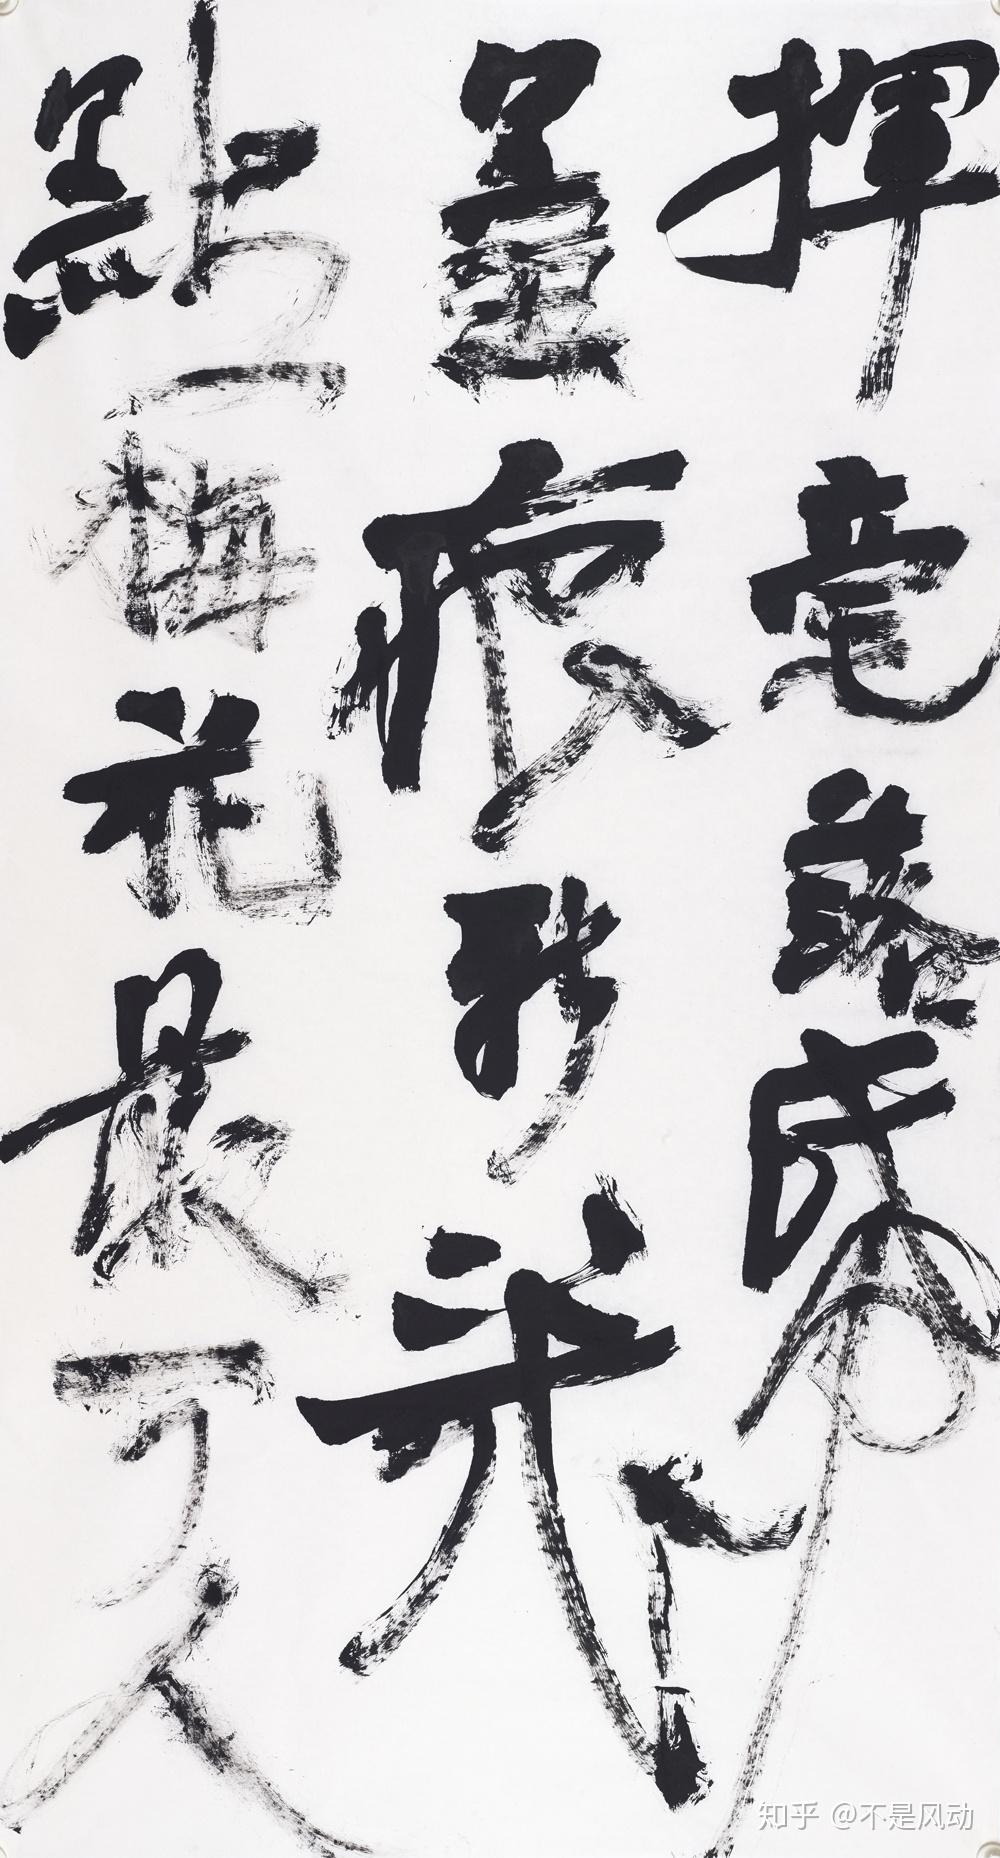 揮毫落帋
墨痕新幾
點梅花最可人
知乎 @不是风动